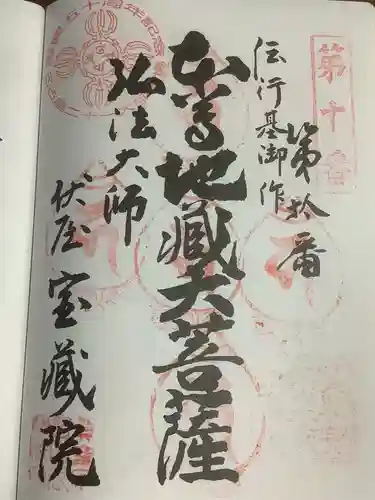 第十番
第拾番
伝行基御作
本尊地蔵大菩薩
弘法大師
伏屋
宝蔵院